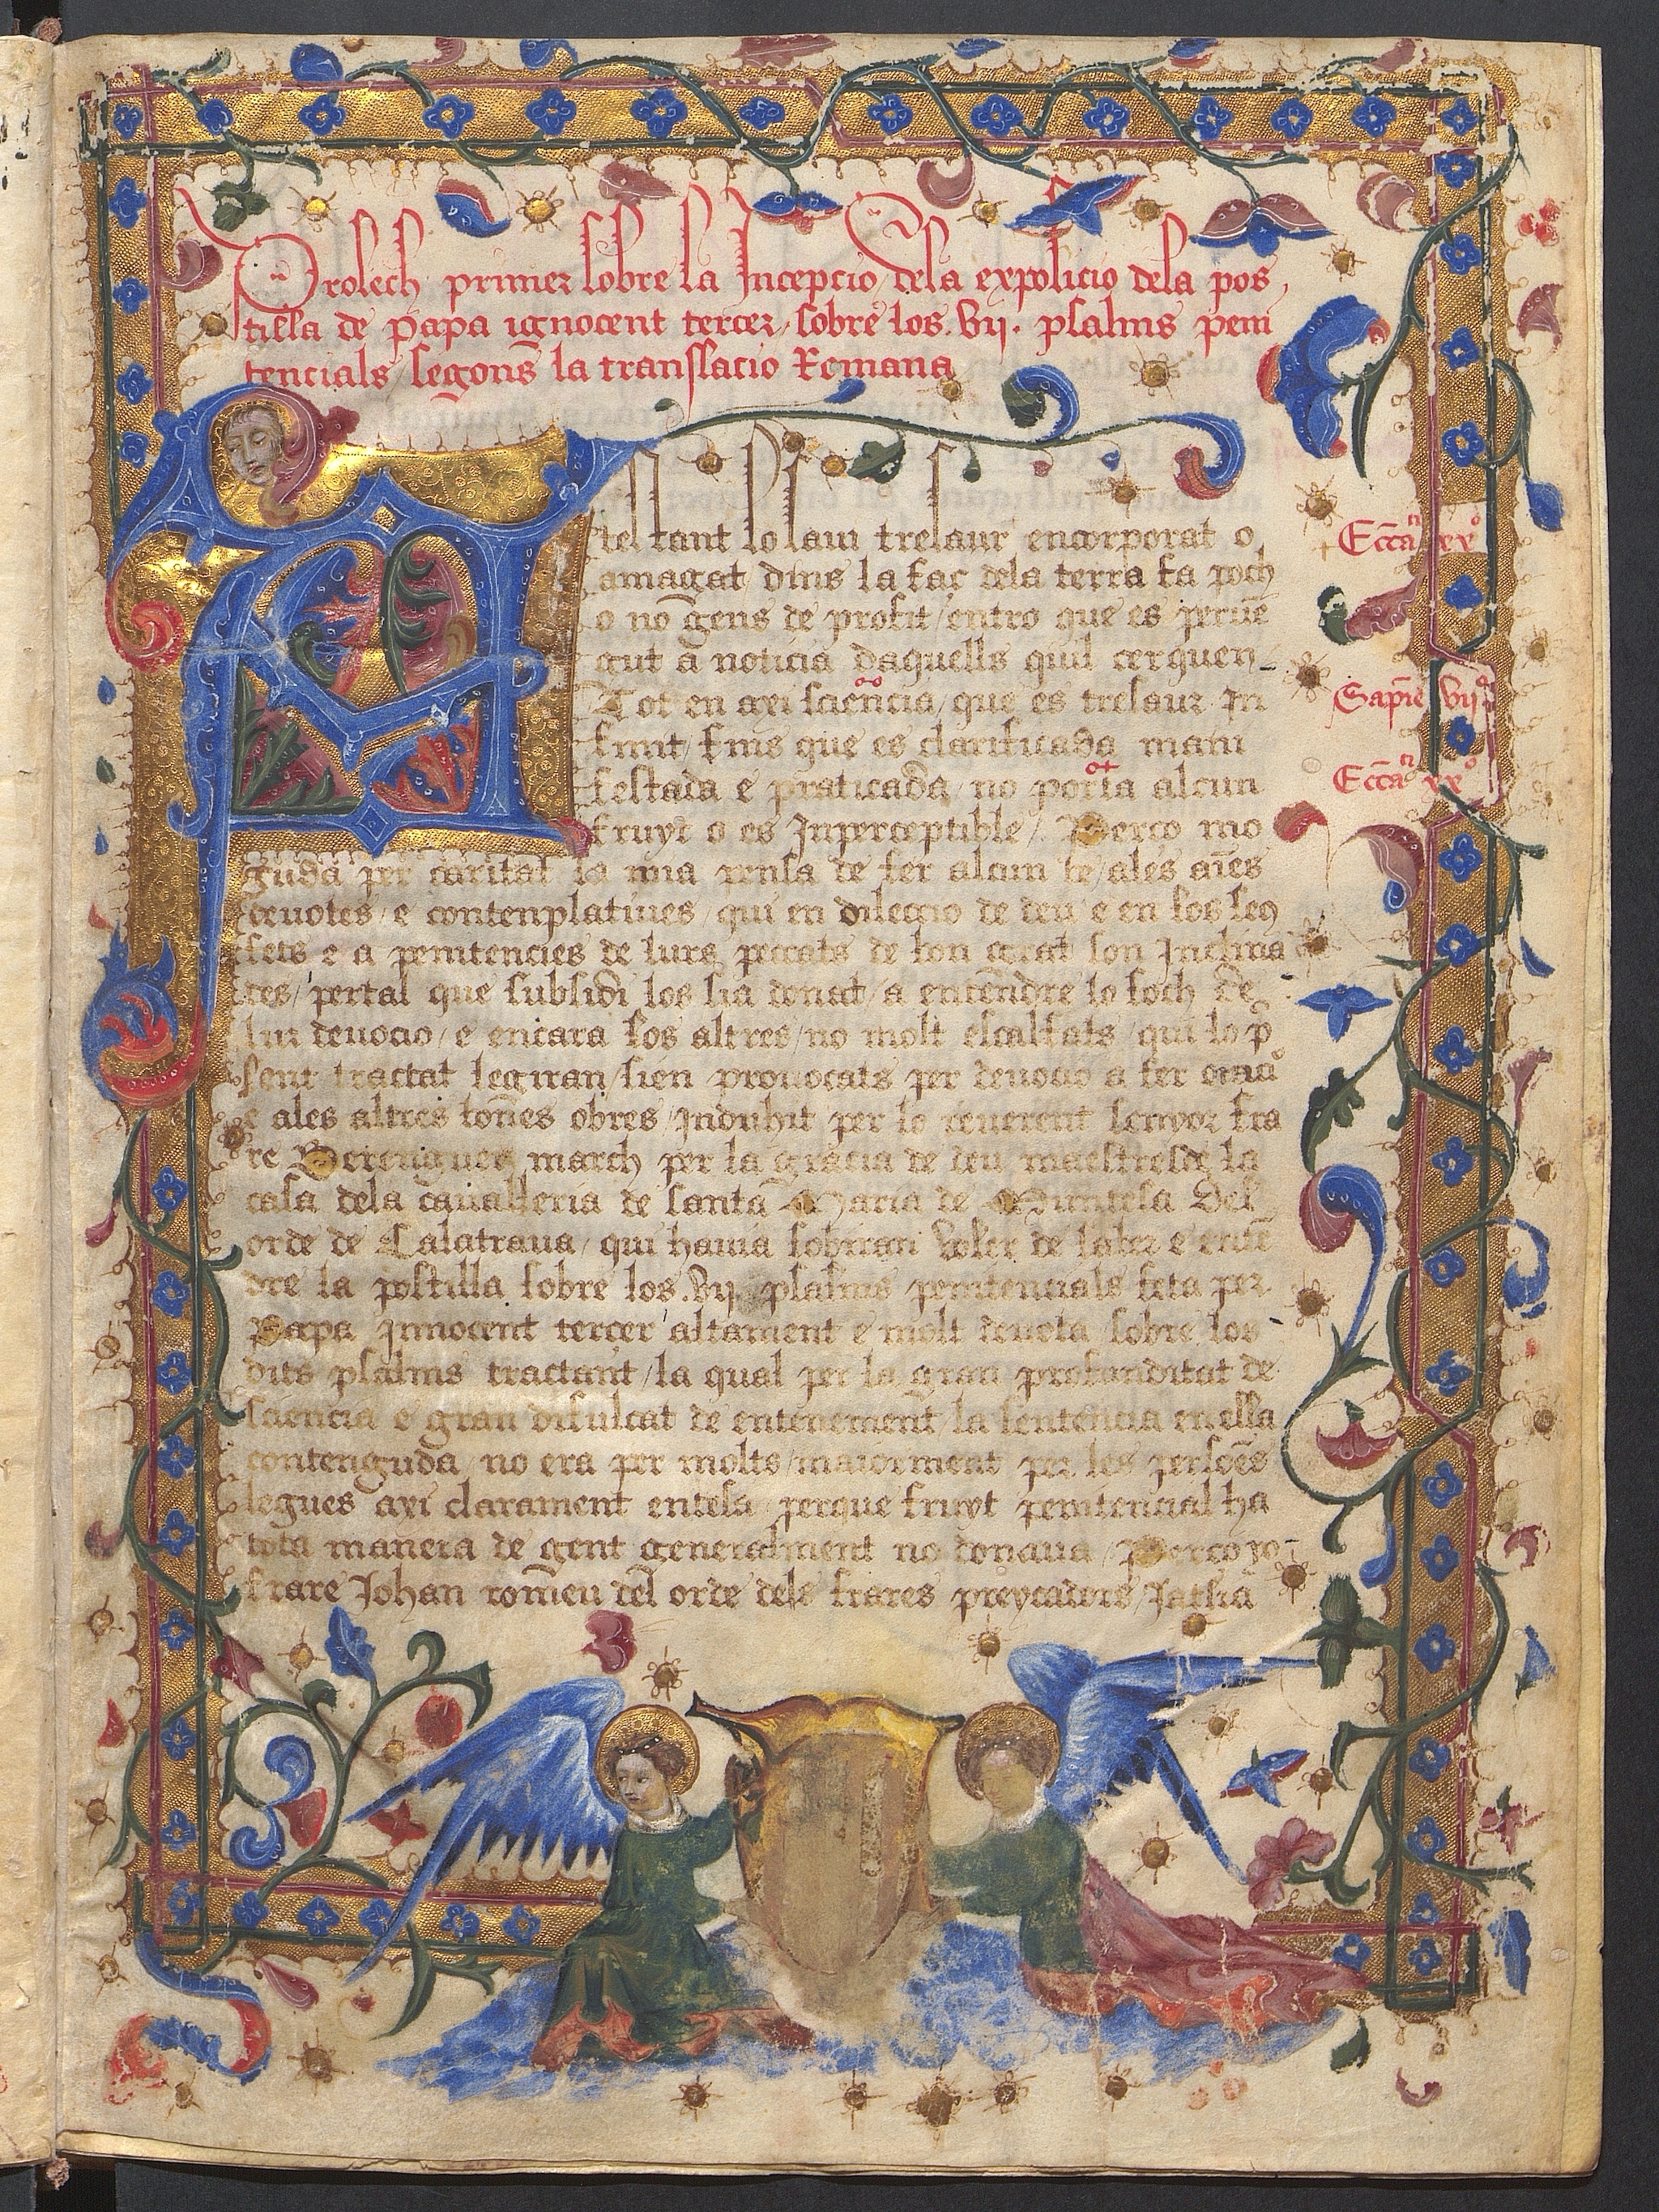 Prolech primer sobre la Incepcio dela exposicio dela pos
tilla de papa ignocent tercer / sobre los .vij. psalms peni
tencials / segons la translacio Romana
Eccā xxº
Sapīe vijº
Eccā xxº
tel tant lo laui tresaur encorporat o
amagat dins la faç dela terra fa poch
o nō gens de profit / entro que es peruē
gut a noticia daquells quil cerquen
Tot en axi sciēncia / que es tresaur In
finit / sins que es clarificada mani
festada e praticada / no porta alcun
fruyt o es Inperceptible / Perco mo
guda per caritat la mia pensa de fer alcun be / ales aīes
deuotes / e contenplatiues / qui en dileccio de deu e en los seus
fets e a penitencies de lurs peccats de bon grat son Inclina
des / pertal que subsidi los sia donat / a encēndre lo foch de
lur deuocio / e encara los altres / no molt escalfats / qui lo p̄
sent tractat legiran / sien prouocats per deuocio a fer
e ales altres bones obres / Induhit per lo reuerent senyor fra
re Berenguer march per la gracia de deu maestre de la
casa dela caualleria de santa Maria de Muntesa Del
orde de Calatraua / qui hauia sobiran voler de saber e entē
dre la postilla sobre los .vij. psalms penitencials feta per
Papa Innocent tercer altament e molt deuota sobre los
dits psalms tractant / la qual per la gran profunditat de
sciencia e gran dificultat de enteniment / la sentencia en ella
contenguda / no era per molts / maiorment per les persōes
legues axi clarament entesa / perque fruyt penitencial ha
tota manera de gent generalment no donaua / Perco yo
frare Johan romeu del orde dels frares preycadors / Jatsia